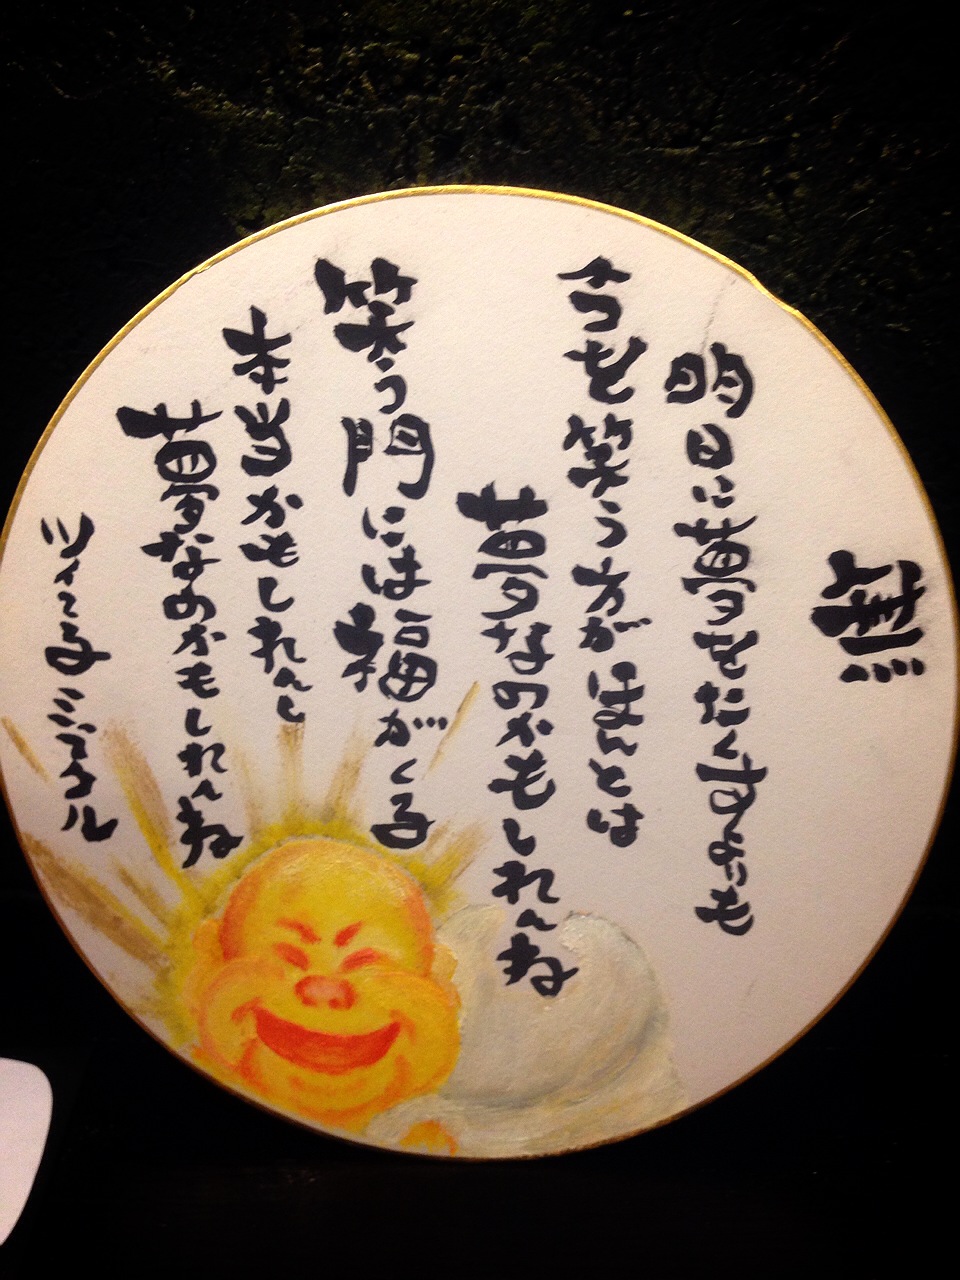 無
明日に夢をたくすよりも
今を笑う方がほんとは
夢なのかもしれんね
笑う門には福がくる
本当かもしれんし
夢なのかもしれんね